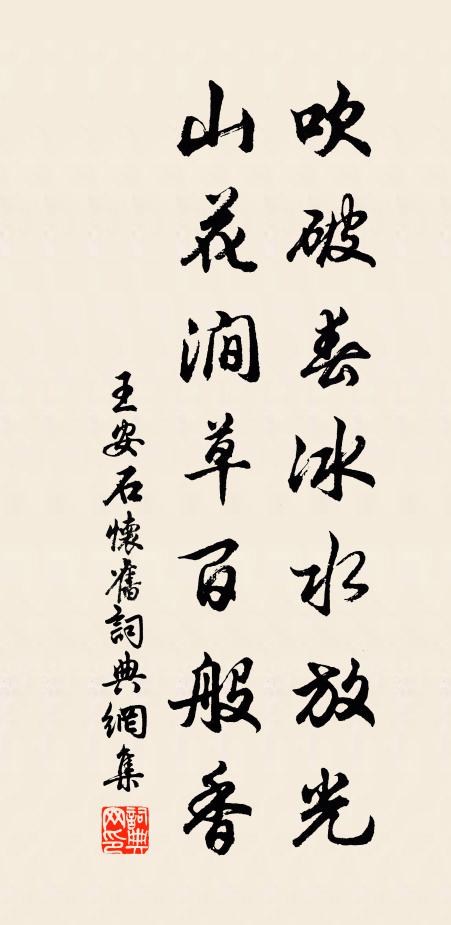 吹破春冰水放光
山花澗草百般香
王安石懷舊詞典網集
詞典網印